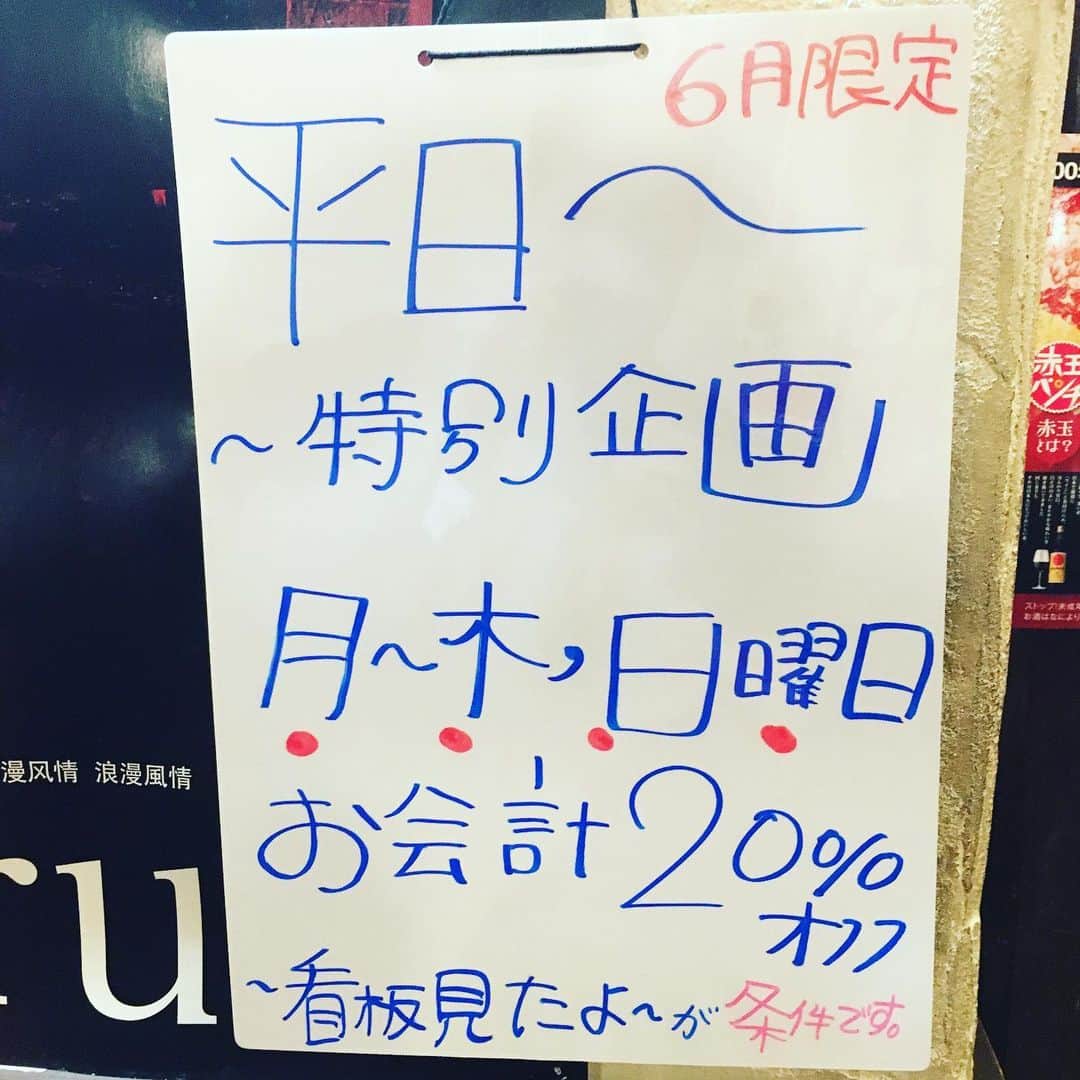 6月限定
平日〜
〜特別企画
月〜木,日曜日
お会計20%
オフ
〜看板見たよ〜が条件です。
漫风情 浪漫風情
ru
00:
赤玉
パンチ
赤玉
とは?
ストップ!未成年
お酒はなにより